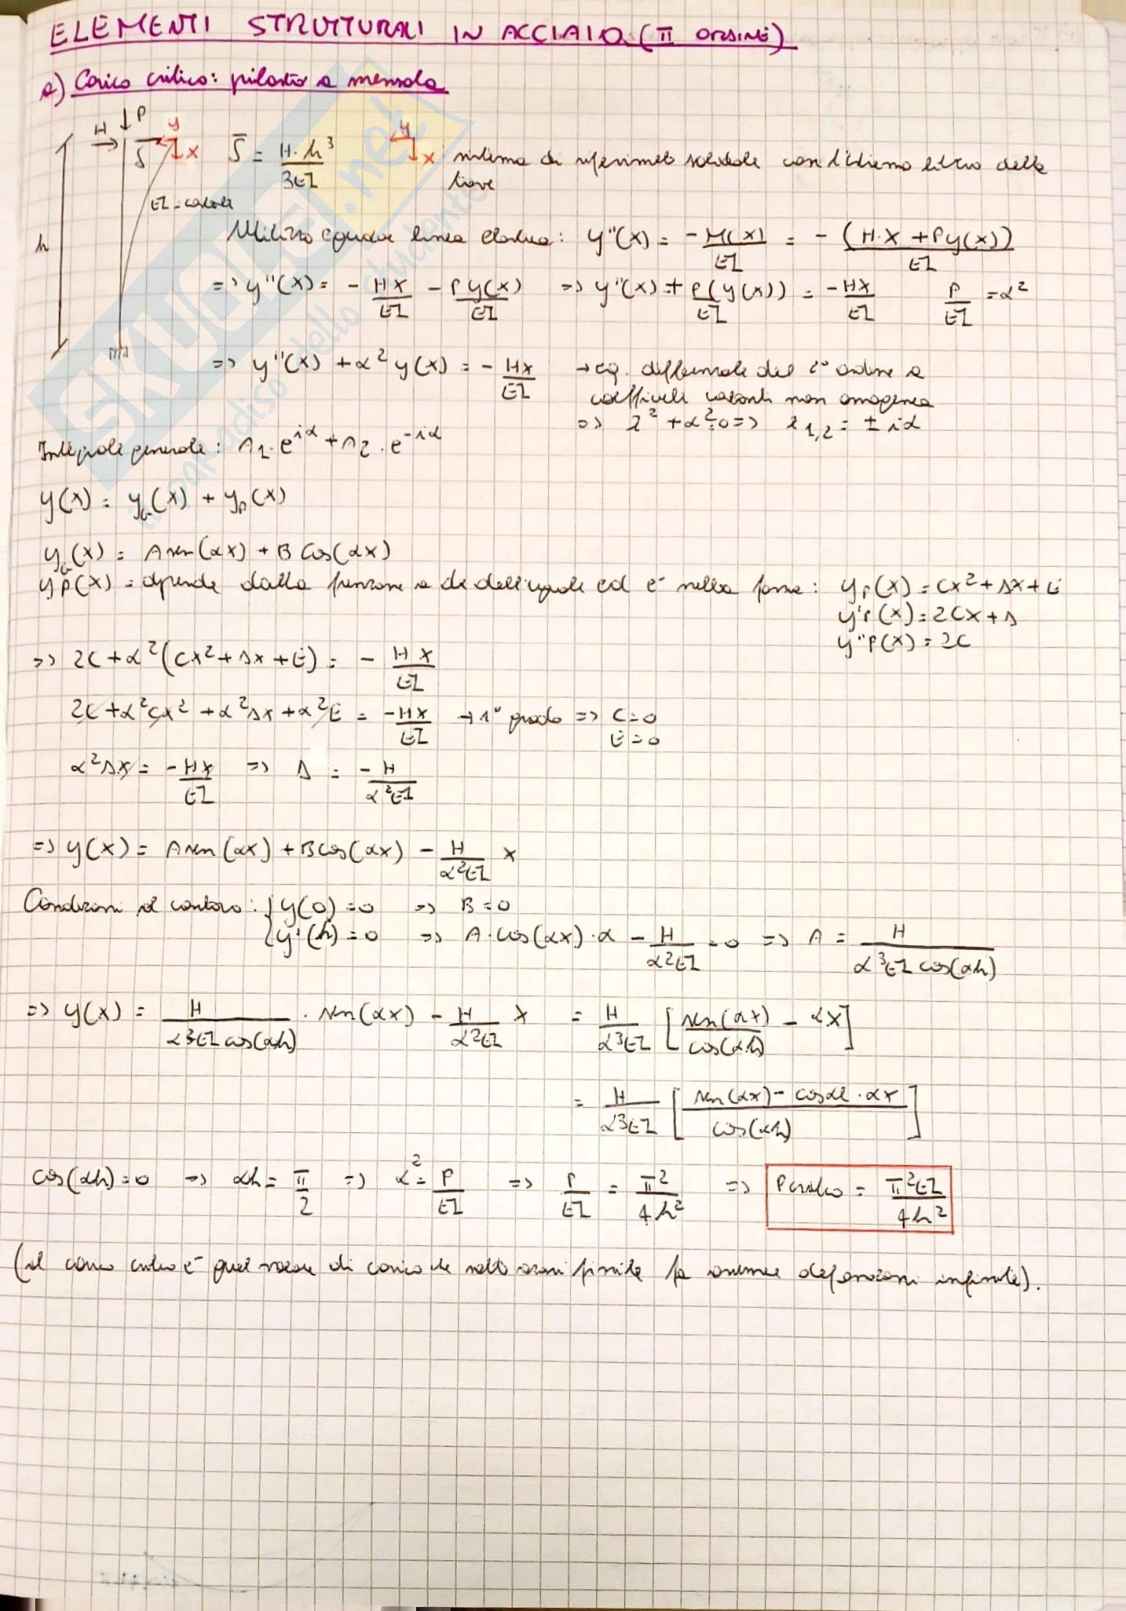 ELEMENTI STRUTTURALI IN ACCIAIO (II ORDINE)
a) Carico critico: pilastro a mensola
H P y x δ̄ h EI=costante
δ̄ = H·h³/3EI
y x sistema di riferimento solidale con l'estremo libero della trave
Utilizzo equazione linea elastica: y''(x) = -M(x)/EI = -(H·x + Py(x))/EI
=> y''(x) = -Hx/EI - Py(x)/EI => y''(x) + P(y(x))/EI = -Hx/EI P/EI = α²
=> y''(x) + α² y(x) = -Hx/EI → eq. differenziale del 2° ordine a
coefficienti costanti non omogenea
=> λ² + α² = 0 => λ1,2 = ± iα
Integrale generale: A1·e^iα + A2·e^-iα
y(x) = yG(x) + yp(x)
yG(x) = A sen(αx) + B cos(αx)
yp(x) = dipende dalla funzione a dx dell'uguale ed è nella forma: yp(x) = Cx² + Dx + E
y'p(x) = 2Cx + D
y''p(x) = 2C
=> 2C + α²(Cx² + Dx + E) = - Hx/EI
2C + α²Cx² + α²Dx + α²E = -Hx/EI → 1° grado => C=0
E=0
α²Dx = -Hx/EI => D = -H/α²EI
=> y(x) = A sen(αx) + B cos(αx) - H/α²EI x
Condizioni al contorno: { y(0) = 0 => B=0
y'(h) = 0 => A·cos(αx)·α - H/α²EI = 0 => A = H/α³EI cos(αh)
=> y(x) = H/α³EI cos(αh) · sen(αx) - H/α²EI x = H/α³EI [sen(αx)/cos(αh) - αx]
= H/α³EI [(sen(αx) - cosαh·αx)/cos(αh)]
cos(αh)=0 => αh = π/2 => α² = P/EI => P/EI = π²/4h² => Pcritico = π²EI/4h²
(il carico critico è quel valore di carico che sotto azioni finite fa avvenire deformazioni infinite).
SKUOLA.net
il paradiso dello studente